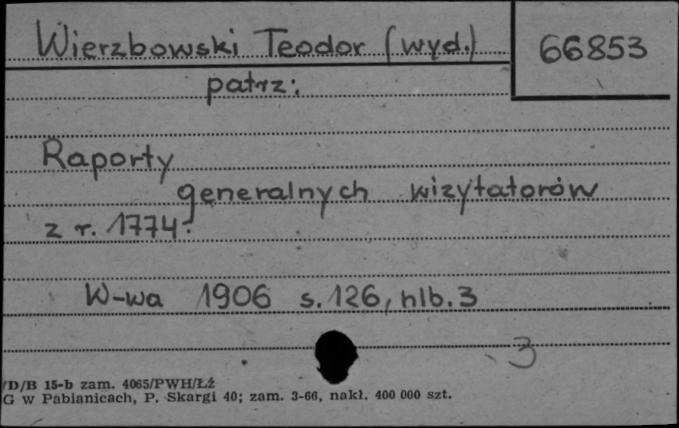 Wierzbowski Teodor (wyd.)
66853
patrz:
Raporty
generalnych wizytatorów
z r. 1774.
W-wa 1906 s. 126, nlb. 3
3
/D/B 15-b zam. 4065/PWH/Łż
G w Pabianicach, P. Skargi 40; zam. 3-66, nakł. 400 000 szt.